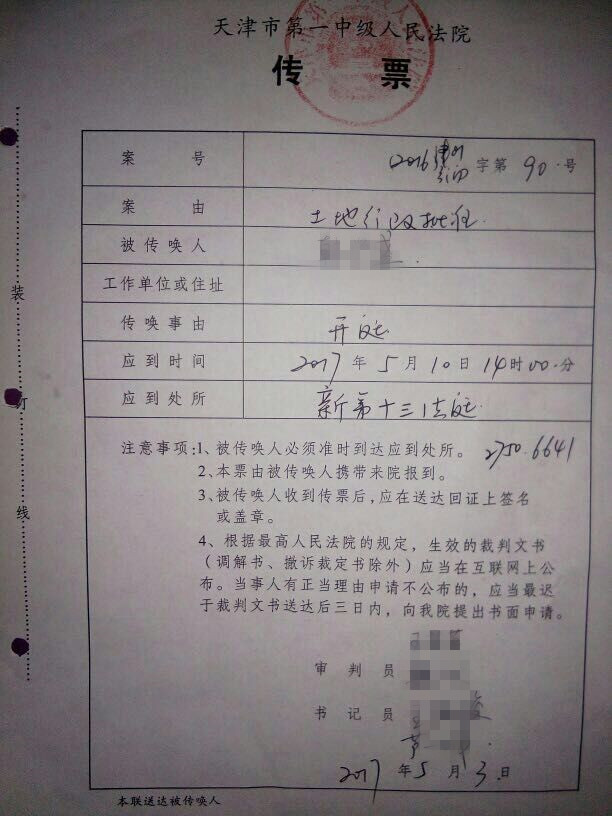 天津市第一中级人民法院
传 票
案 号 (2016)津01行初字第90号
案 由 土地行政批准
被传唤人
工作单位或住址
传唤事由 开庭
应到时间 2017年5月10日14时00分
应到处所 新第十三法庭
注意事项:1、被传唤人必须准时到达应到处所。 2750.6641
2、本票由被传唤人携带来院报到。
3、被传唤人收到传票后,应在送达回证上签名
或盖章。
4、根据最高人民法院的规定,生效的裁判文书
(调解书、撤诉裁定书除外)应当在互联网上公
布。当事人有正当理由申请不公布的,应当最迟
于裁判文书送达后三日内,向我院提出书面申请。
审 判 员
书 记 员
2017年5月3日
本联送达被传唤人
装
订
线